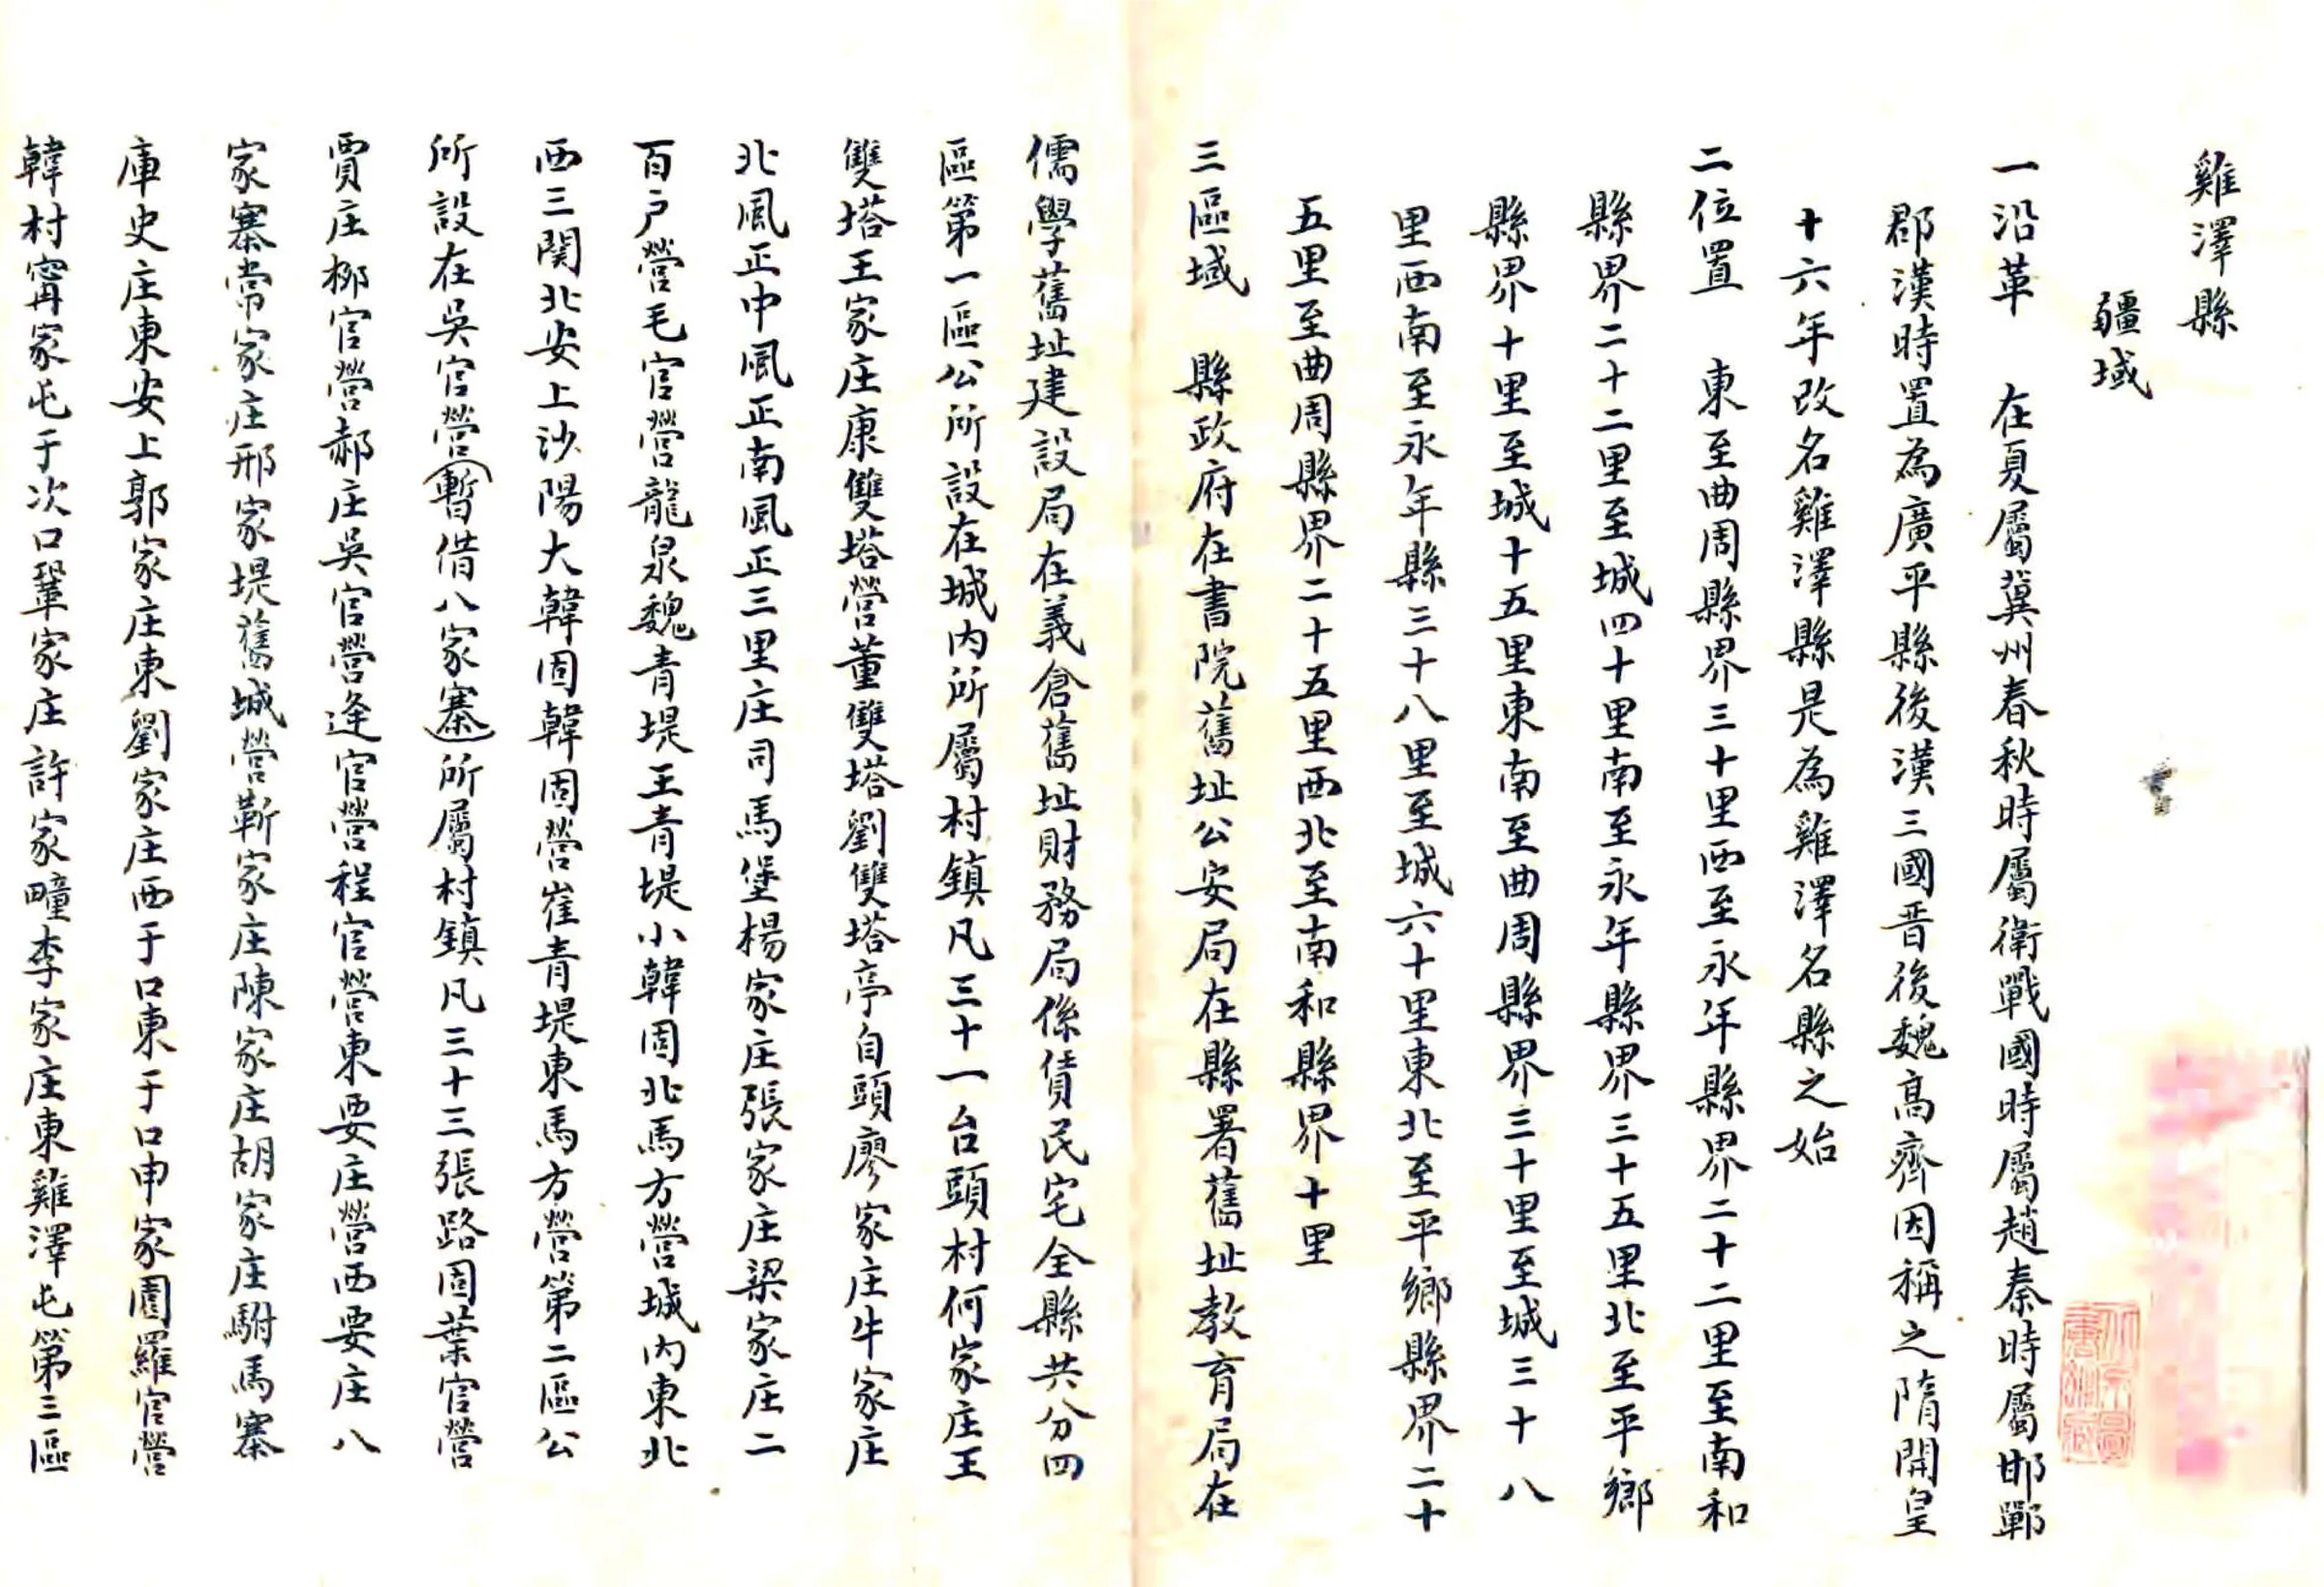 雞澤縣
疆域
一沿革　在夏屬冀州春秋時屬衛戰國時屬趙秦時屬邯鄲
郡漢時置為廣平縣後漢三國晋後魏髙齊因稱之隋開皇
十六年改名雞澤縣是為雞澤名縣之始
二位置　東至曲周縣界三十里西至永年縣界二十二里至南和
縣界二十二里至城四十里南至永年縣界三十五里北至平鄉
縣界十里至城十五里東南至曲周縣界三十里至城三十八
里西南至永年縣三十八里至城六十里東北至平鄉縣界二十
五里至曲周縣界二十五里西北至南和縣界十里
三區域　縣政府在書院舊址公安局在縣署舊址教育局在
儒學舊址建設局在義倉舊址財務局係賃民宅全縣共分四
區第一區公所設在城内所屬村鎮凡三十一台頭村何家庄王
雙塔王家庄康雙塔營董雙塔劉雙塔亭自頭廖家庄牛家庄
北風正中風正南風正三里庄司馬堡楊家庄張家庄梁家庄二
百户營毛官營龍泉魏青堤王青堤小韓固北馬方營城内東北
西三関北安上沙陽大韓固韓固營崔青堤東馬方營第二區公
所設在吳官營(暫借八家寨)所屬村鎮凡三十三張路固葉官營
賈庄柳官營郝庄吳官營逄官營程官營東要庄營西要庄八
家寨常家庄邢家堤舊城營靳家庄陳家庄胡家庄駙馬寨
庫史庄東安上郭家庄東劉家庄西于口東于口申家園羅官營
韓村寗家屯于次口鞏家庄許家疃李家庄東雞澤屯第三區